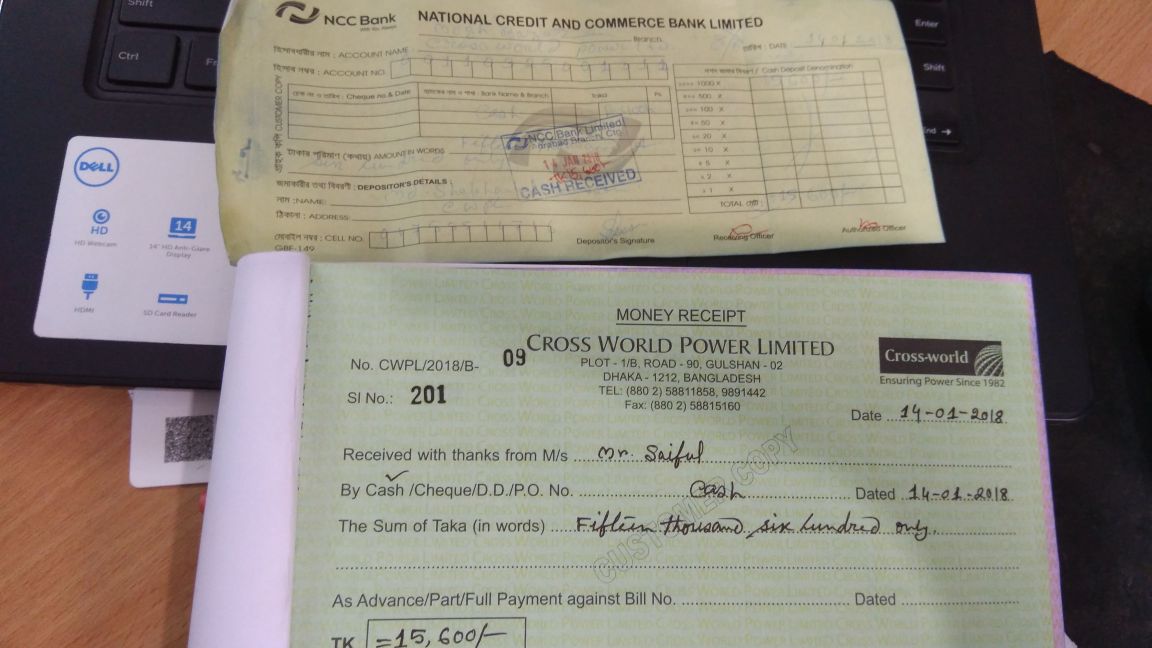 Shift
Ctrl
Enter
Shift
End →
NCC Bank
NATIONAL CREDIT AND COMMERCE BANK LIMITED
Branch
হিসাবধারীর নাম : ACCOUNT NAME
Cross World Power Ltd
তারিখ : DATE 14-01-2018
হিসাব নম্বর : ACCOUNT NO.
CUSTOMER COPY
চেক নং ও তারিখ : Cheque no.& Date
Bank Name & Branch
Taka
Ps.
Cash Deposit Denomination
1000 X
500 X
100 X
50 X
20 X
10 X
5 X
2 X
1 X
TOTAL
15,600/-
Cash
টাকার পরিমাণ (কথায়) AMOUNT IN WORDS
six hundred only
NCC Bank Limited
14 JAN 2018
CASH RECEIVED
জমাকারীর তথ্য বিবরণী : DEPOSITOR'S DETAILS :
নাম :NAME:
CWPL
ঠিকানা : ADDRESS:
মোবাইল নম্বর : CELL NO.
GBF-149
Depositor's Signature
Receiving Officer
Authorized Officer
DELL
HD
HD Webcam
14
14" HD Anti-Glare
Display
HDMI
SD Card Reader
MONEY RECEIPT
No. CWPL/2018/B- 09
CROSS WORLD POWER LIMITED
PLOT - 1/B, ROAD - 90, GULSHAN - 02
DHAKA - 1212, BANGLADESH
TEL: (880 2) 58811858, 9891442
Fax: (880 2) 58815160
Cross-world
Ensuring Power Since 1982
Sl No.: 201
Date 14-01-2018
Received with thanks from M/s Mr. Saiful
By Cash /Cheque/D.D./P.O. No. Cash Dated 14-01-2018
The Sum of Taka (in words) Fifteen thousand six hundred only.
CUSTOMER COPY
As Advance/Part/Full Payment against Bill No. Dated
TK =15,600/-